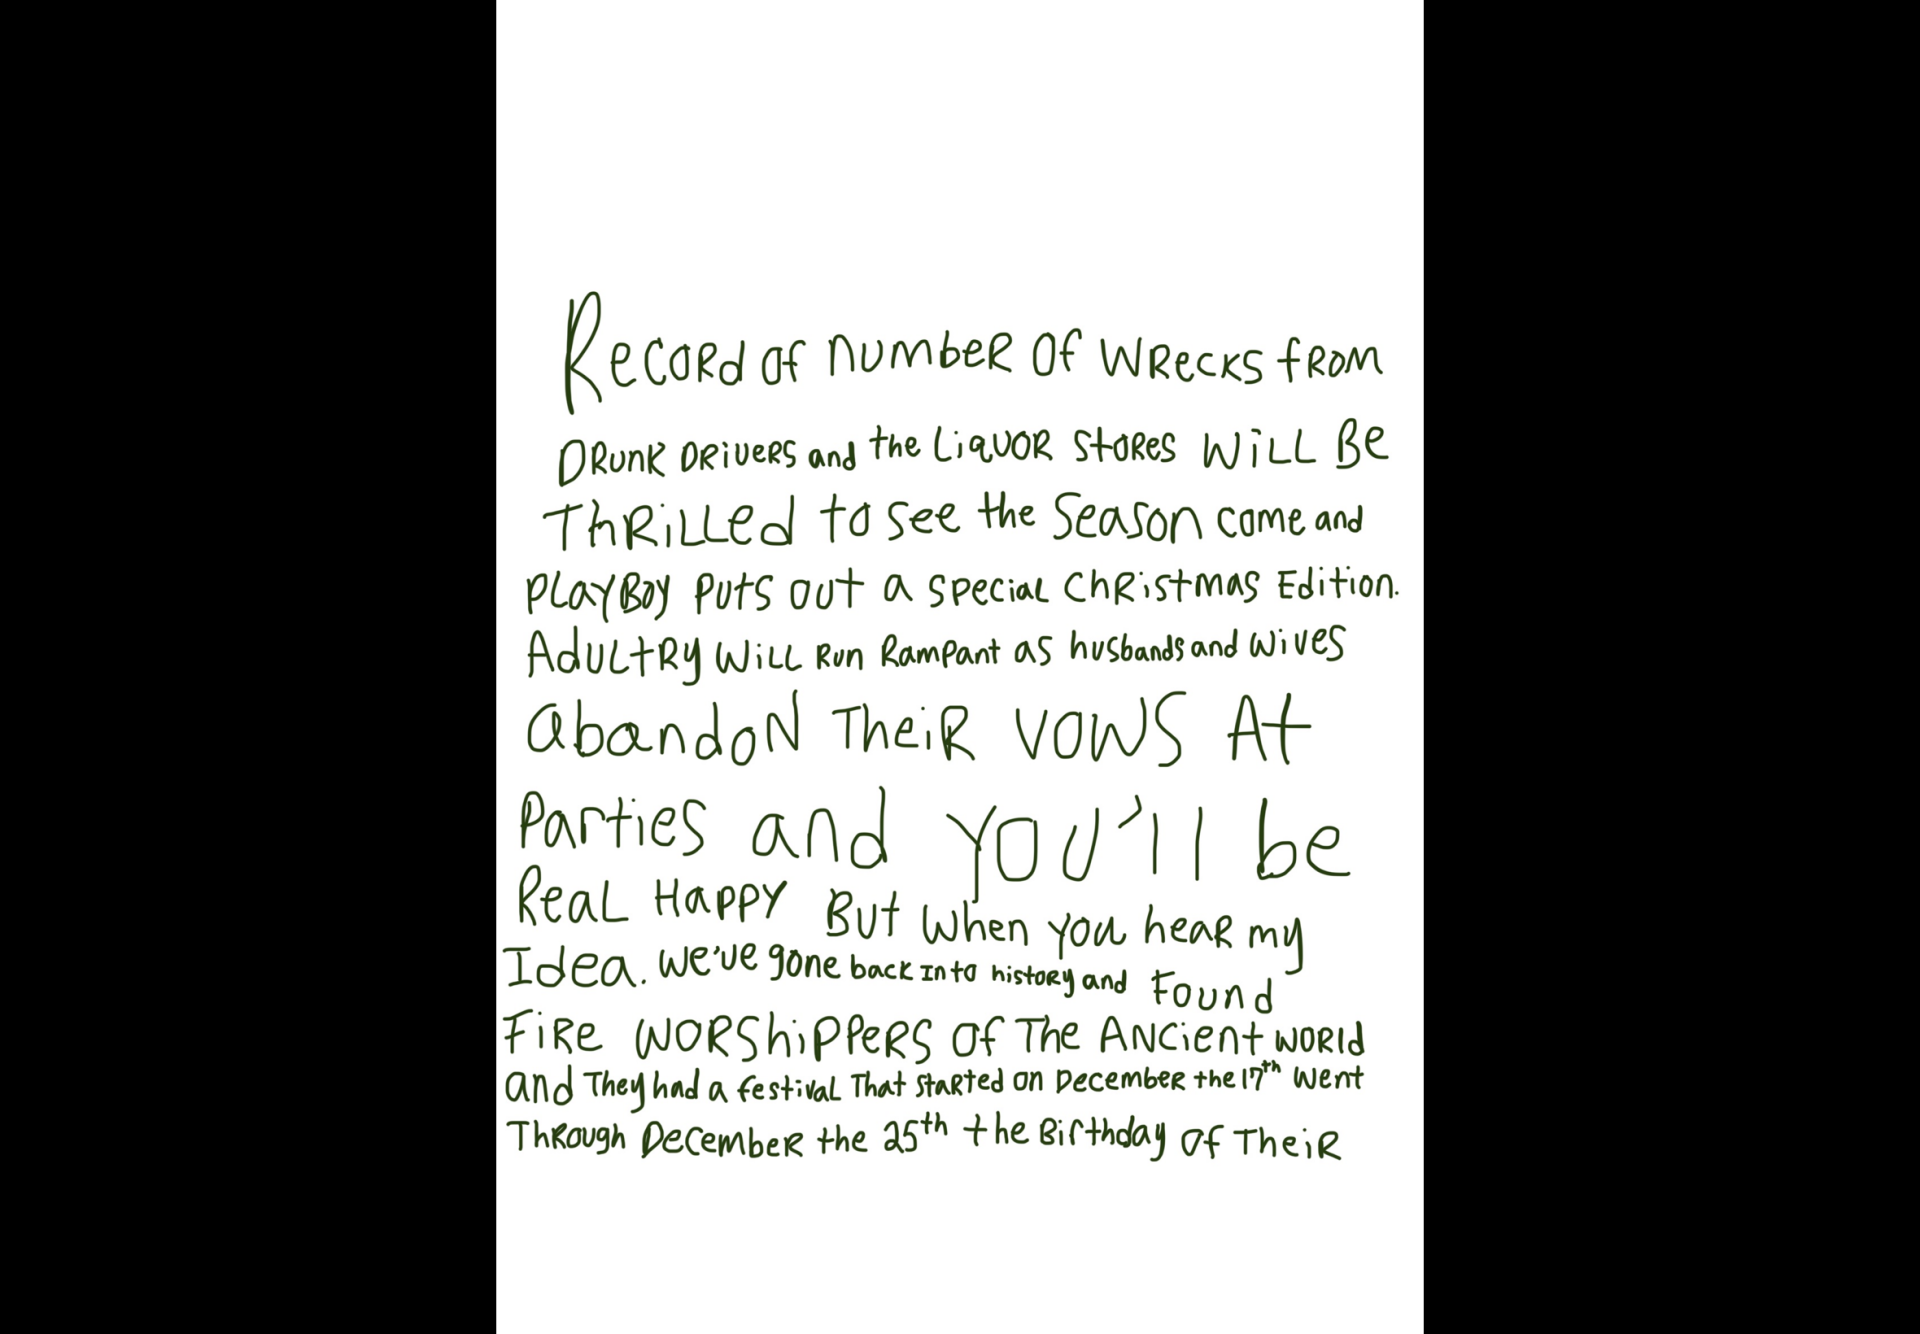 Record of number of wrecks from
Drunk Drivers and the Liquor stores will Be
Thrilled to see the Season come and
Playboy Puts out a special Christmas Edition.
Adultry will Run Rampant as husbands and wives
abandon Their vows At
Parties and you'll be
Real Happy But when you hear my
Idea. we've gone back Into history and Found
Fire worshippers of The Ancient world
and They had a festival That started on December the 17th went
Through December the 25th the Birthday of Their